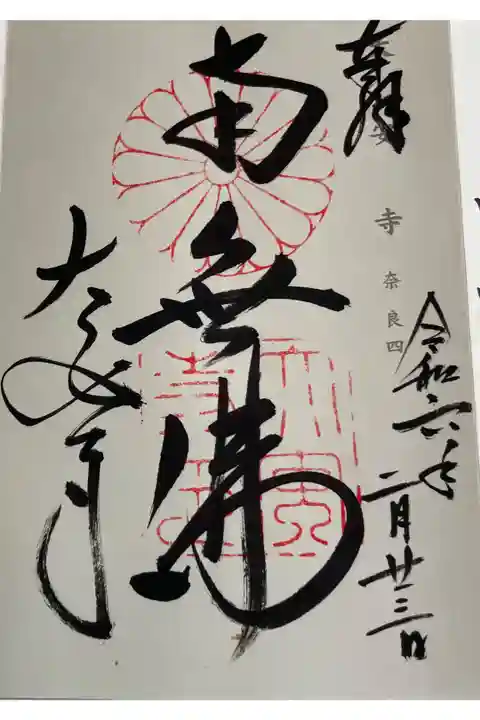 奉拝
令和六年二月廿三日
安寺 奈良四
南無佛
大安寺